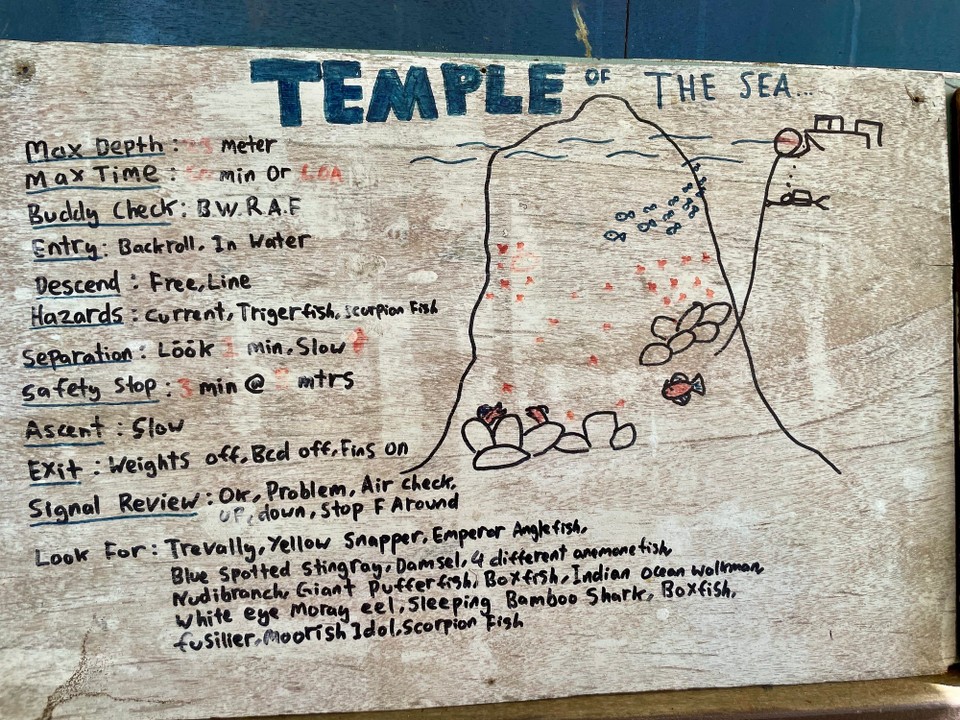 TEMPLE OF THE SEA...
Max Depth : meter
Max Time : min Or
Buddy Check : B.W.R.A.F
Entry : Backroll, In Water
Descend : Free, Line
Hazards : Current, Trigerfish, Scorpion Fish
Separation : Löök 1 min, Slow
Safety Stop : 3 min @ mtrs
Ascent : Slow
Exit : Weights off, Bcd off, Fins on
Signal Review : OK, Problem, Air check,
UP, down, Stop F Around
Look For : Trevally, Yellow Snapper, Emperor Anglefish,
Blue Spotted Stingray, Damsel, 4 different anemonefish,
Nudibranch, Giant Pufferfish, Boxfish, Indian Ocean Walkman,
White eye Moray eel, Sleeping Bamboo Shark, Boxfish,
fusilier, Moorish Idol, Scorpion Fish